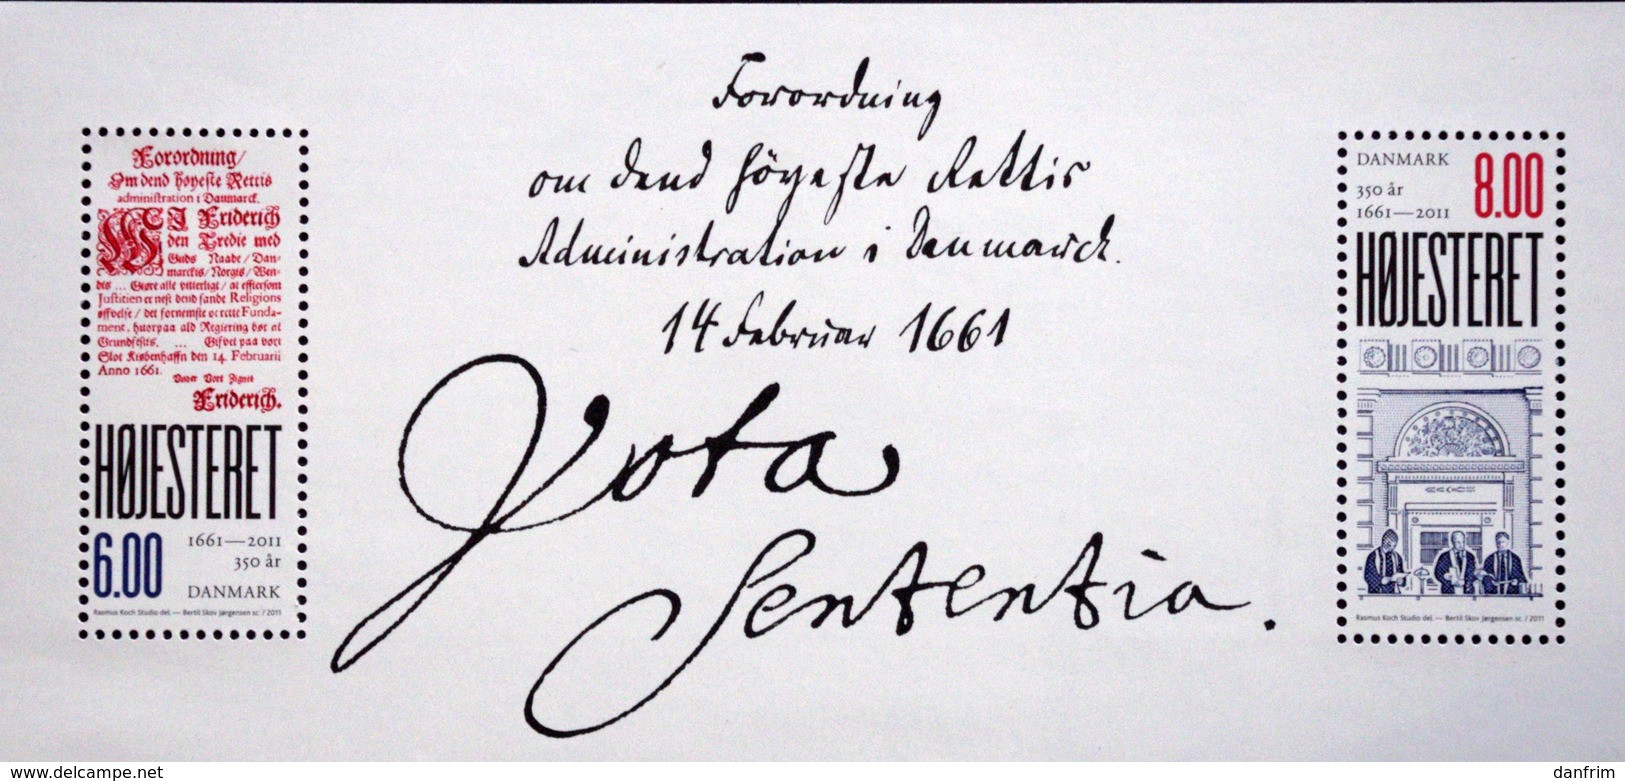 Forordning/
Om dend høyeste Rettis
administration i Danmarck.
WEJ Friderich
den Tredie med
Guds Naade/ Dan-
marckis/ Norgis/ Wen-
dis ... Giøre alle vitterligt/ at effterson
Justitien er nest dend sande Religions
øffvelse/ det fornemste oc rette Funda-
ment, huorpaa ald Regiering bør at
Grundfestis. ... Gifvet paa vort
Slot Kiøbenhaffn den 14. Februarii
Anno 1661.
Under Vort Zignet
Friderich.
HØJESTERET
6.00
1661—2011
350 år
DANMARK
Rasmus Koch Studio del. — Bertil Skov Jørgensen sc. / 2011
Forordning
om dend höyeste Rettis
Administration i Danmarck.
14 Februar 1661
Vota
Sententia.
DANMARK
350 år
1661—2011
8.00
HØJESTERET
Rasmus Koch Studio del. — Bertil Skov Jørgensen sc. / 2011
delcampe.net
danfrim